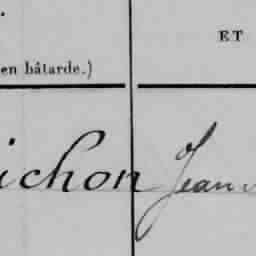 ET
en bâtarde.)
ichon Jean